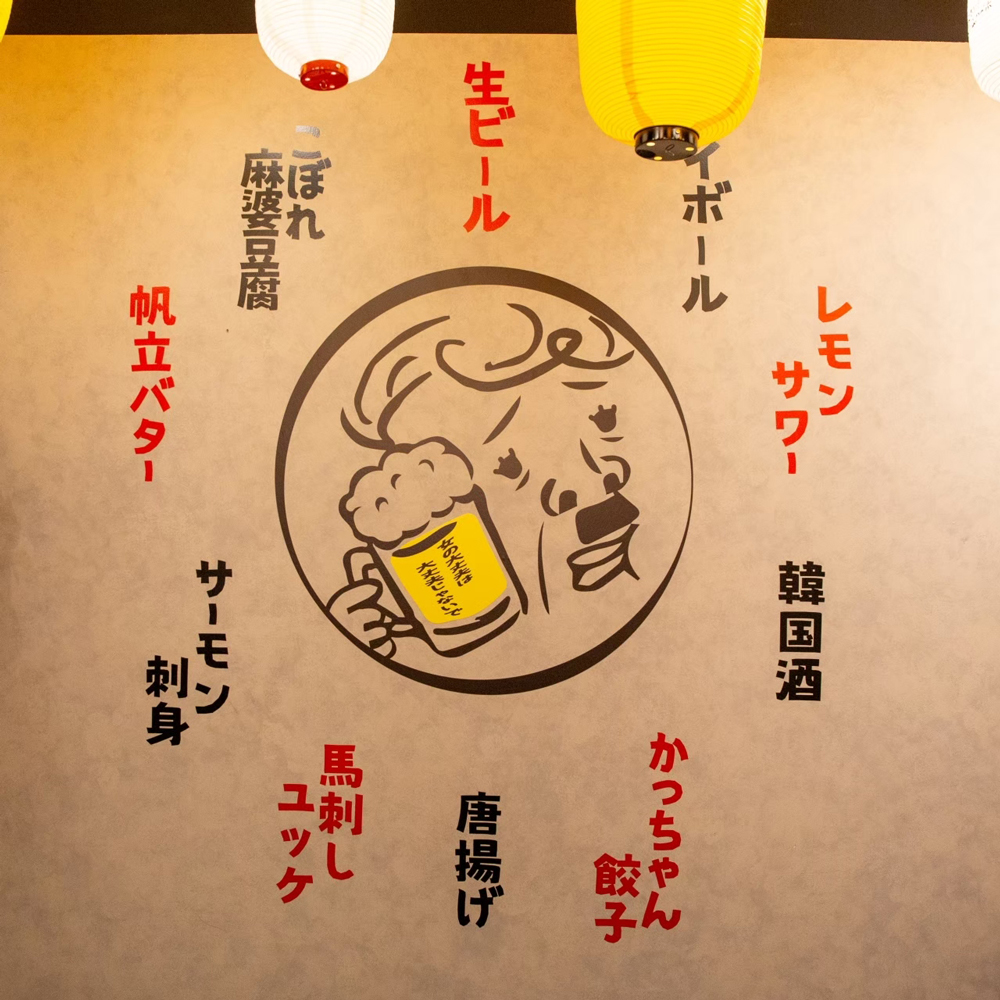 生ビール
イボール
レモン
サワー
韓国酒
かっちゃん
餃子
唐揚げ
馬刺し
ユッケ
サーモン
刺身
帆立バター
こぼれ
麻婆豆腐